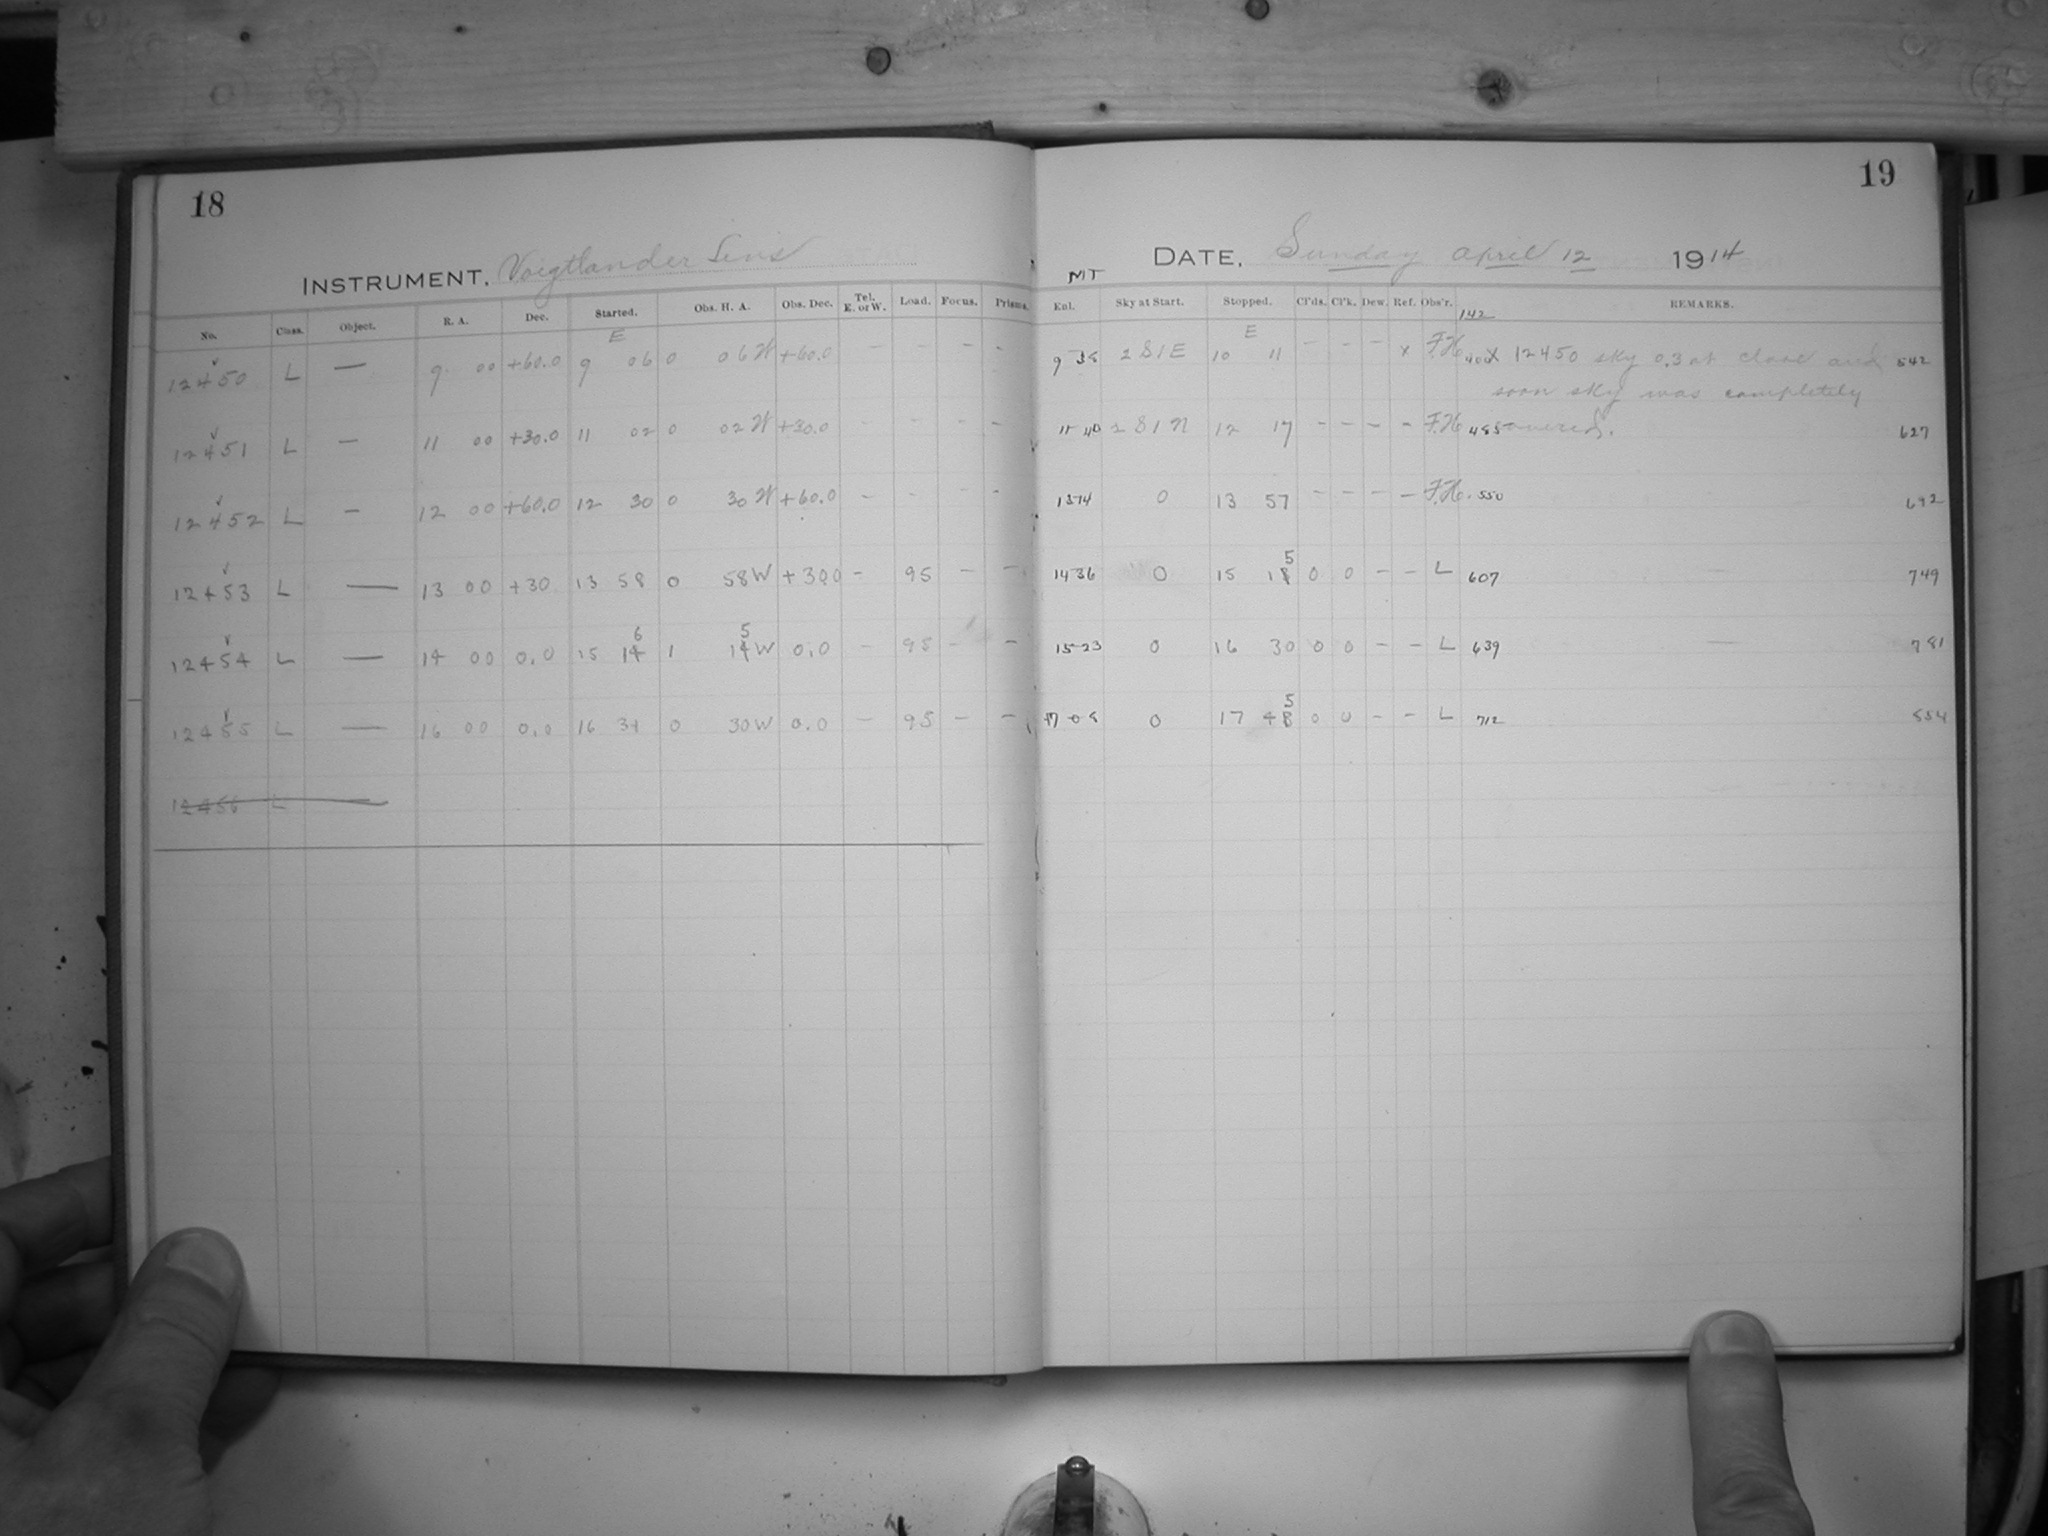 18
INSTRUMENT. Voigtlander Lens
No. Class. Object. R. A. Dec. Started. Obs. H. A. Obs. Dec. Tel. E. or W. Load. Focus. Prisms.
E
12450 L — 9 00 +60.0 9 06 0 06 W +60.0 — — — —
12451 L — 11 00 +30.0 11 02 0 02 W +30.0 — — — —
12452 L — 12 00 +60.0 12 30 0 30 W +60.0 — — — —
12453 L — 13 00 +30 13 58 0 58 W +30.0 — 95 — —
6 5
12454 L — 14 00 0.0 15 14 1 14 W 0.0 — 95 — —
12455 L — 16 00 0.0 16 34 0 30 W 0.0 — 95 — —
12456 L —
19
DATE, Sunday April 12 1914
MT
Enl. Sky at Start. Stopped. Cl'ds. Cl'k. Dew. Ref. Obs'r. REMARKS.
142
E
9 38 2 S 1 E 10 11 — — — x F.H. 400 X 12450 sky 0.3 at close and 542
soon sky was completely
11 40 2 S 1 N 12 17 — — — — F.H. 485 covered. 627
1314 0 13 57 — — — — F.H. 550 692
5
1436 0 15 18 0 0 — — L 607 749
1523 0 16 30 0 0 — — L 639 781
5
17 08 0 17 48 0 0 — — L 712 854